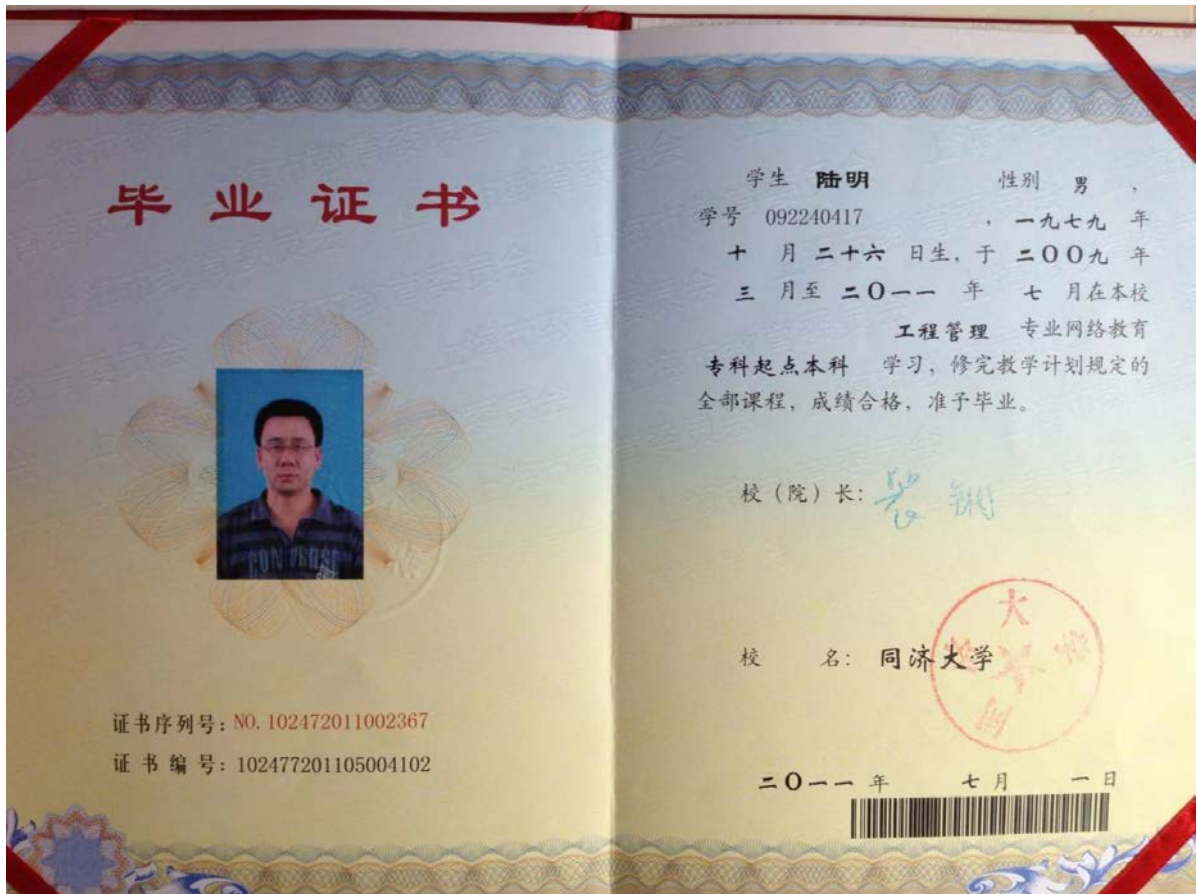 毕业证书
CONVERSE
证书序列号：NO. 102472011002367
证书编号：102477201105004102
学生 陆明 性别 男，
学号 092240417 ，一九七九 年
十 月 二十六 日生，于 二〇〇九 年
三 月至 二〇一一 年 七 月在本校
工程管理 专业网络教育
专科起点本科 学习，修完教学计划规定的
全部课程，成绩合格，准予毕业。
校（院）长：裴钢
校 名：同济大学
同济大学
二〇一一 年 七 月 一 日